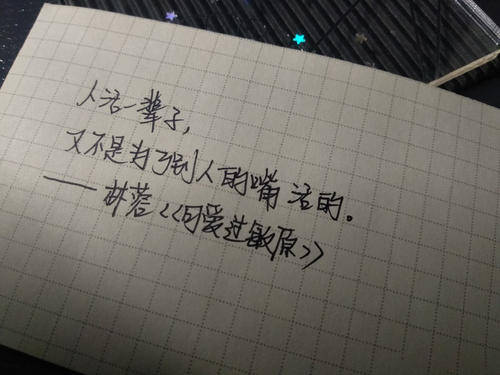 人活一辈子,
又不是为了别人的嘴活的。
—— 《可爱过敏原》